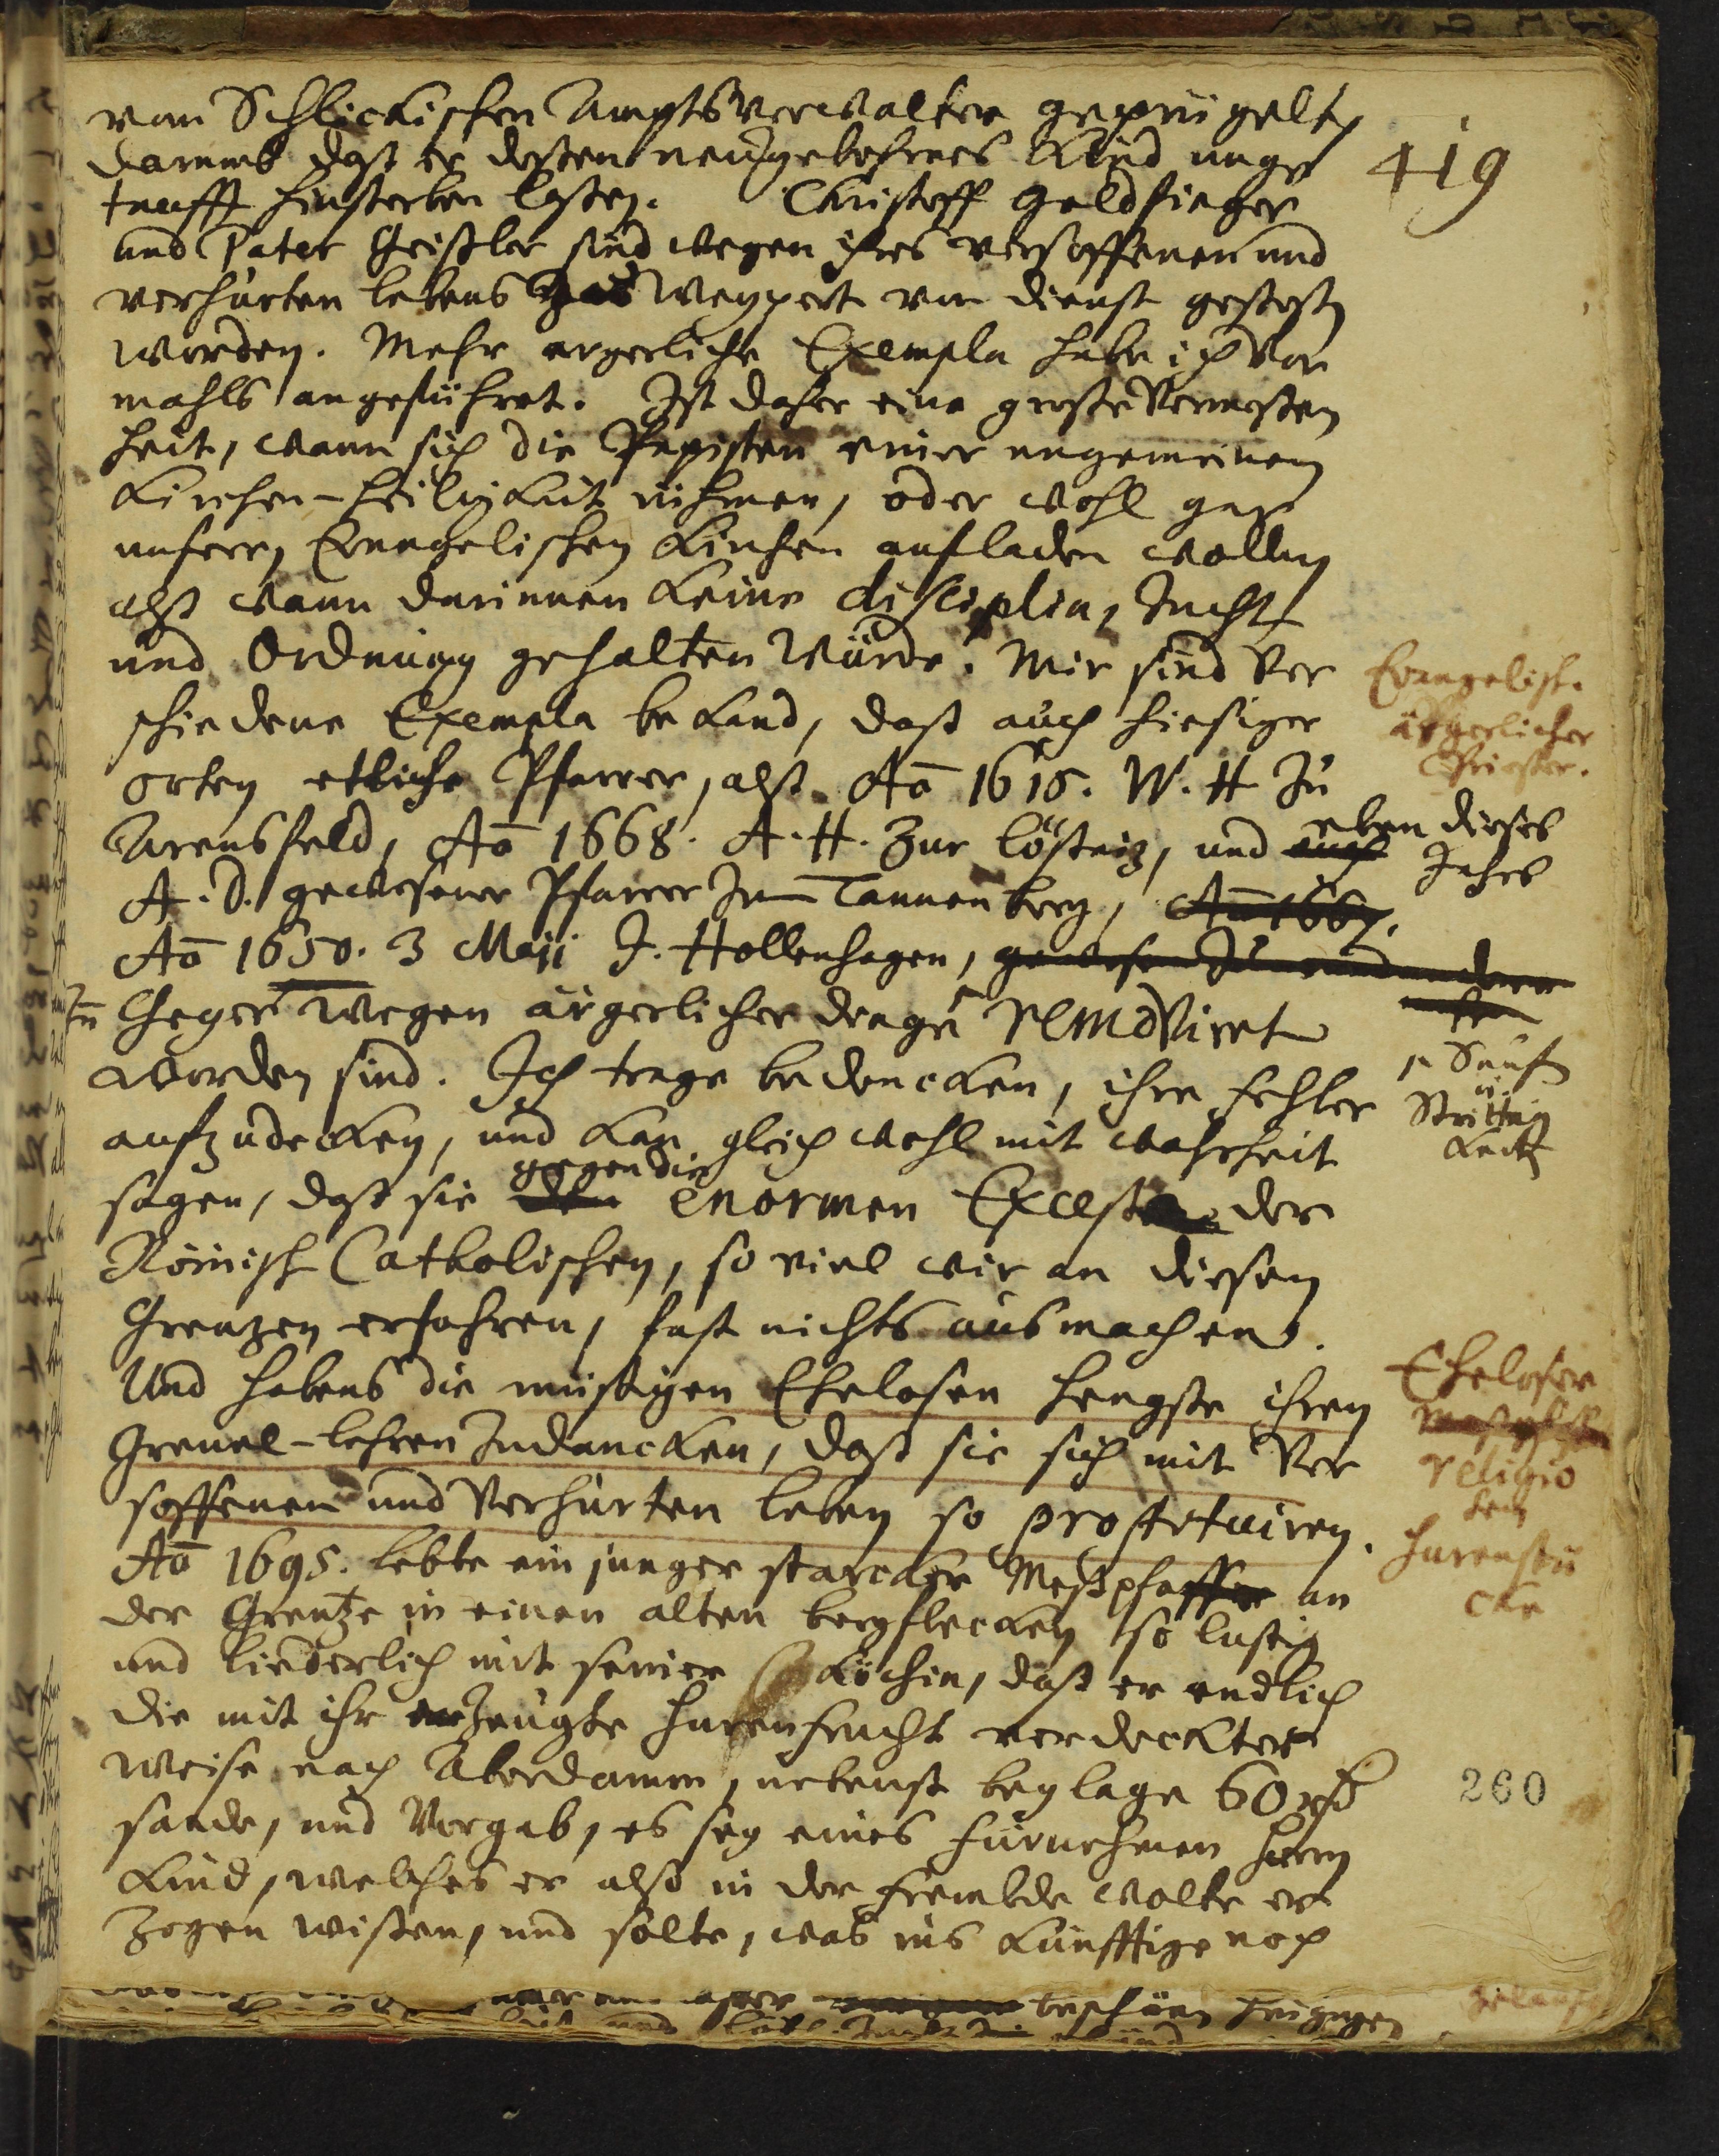 419
vom Schlickischen Amptsverwalter geprügelt,
darumb daß er deßen neügebohrnes Kind unge
taufft hinsterben laßen. Christoff Goldfinger
und Pater Geißler sind wegen ihres versoffenen und
verhurten lebens Weypert vom dienst gestoßen
worden. Mehr ergerliche Exempla habe ich vor
mahls angeführet. Ist daher eine große Vermeßen
heit, wann sich die Papisten einer ungemeinen
Kirchen-heiligkeit rühmen, oder wohl gar
unserer Evangelischen Kirchen aufladen wollen
alß wann darinnen keine disciplin, Zucht
und Ordnung gehalten würde. Mir sind Ver
schiedene Exempla bekand, daß auch hiesiger
orten etliche Pfarrer, alß Aō 1618. W. H. zu
Arensfeld, Aō 1668. A. H. zur Lößniz, und auch eben dieses
Jahres
A. D. gewesener Pfarrer zum Tannenberg, Aō 1667.
Aō 1650. 3 Maji J. Hollenhagen,
zu Geyer wegen ärgerlicher dinge removiret
worden sind. Ich trage bedencken, ihre fehler
aufzudecken, und kan gleich wohl mit wahrheit
sagen, daß sie gegen die enormen Exceße der
Römisch Catholischen, so viel wir an diesen
Grentzen erfahren, fast nichts ausmachen.
Und habens die müßigen Ehelosen hengste ihren
Greuel-lehren zudancken, daß sie sich mit Ver
soffenen und Verhurten leben so prostituiren.
Aō 1695. lebte ein junger starcker Meßpfaffe an
der Grentze in einen alten bergflecken so lustig
und liederlich mit seiner Köchin, daß er endlich
die mit ihr erzeugte hurenfrucht verdeckter
weise nach Aberdamm, nebenst beylage 60 rth
sande, und Vorgab, es sey eines fürnehmen herrn
Kind, welches er also in der frembde wolte er
zogen wißen, und solte, was ins künfftige noch
Evangelisch.
ärgerlicher
Priester.
Sauf
u.
Ehelosen
religio
sen
hurenstü
cke
260